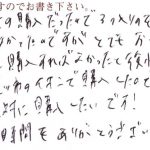 すのでお書き下さい。
ての購入だったので3つ入りのを
なかったのですがとてもお
購入すればよかったと後悔
イオンで購入したので
絶対に購入したいです!
時間をありがとうござい